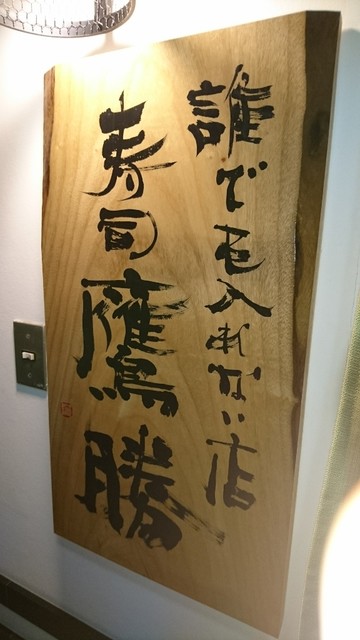 誰でも入れない店
寿司鷹勝